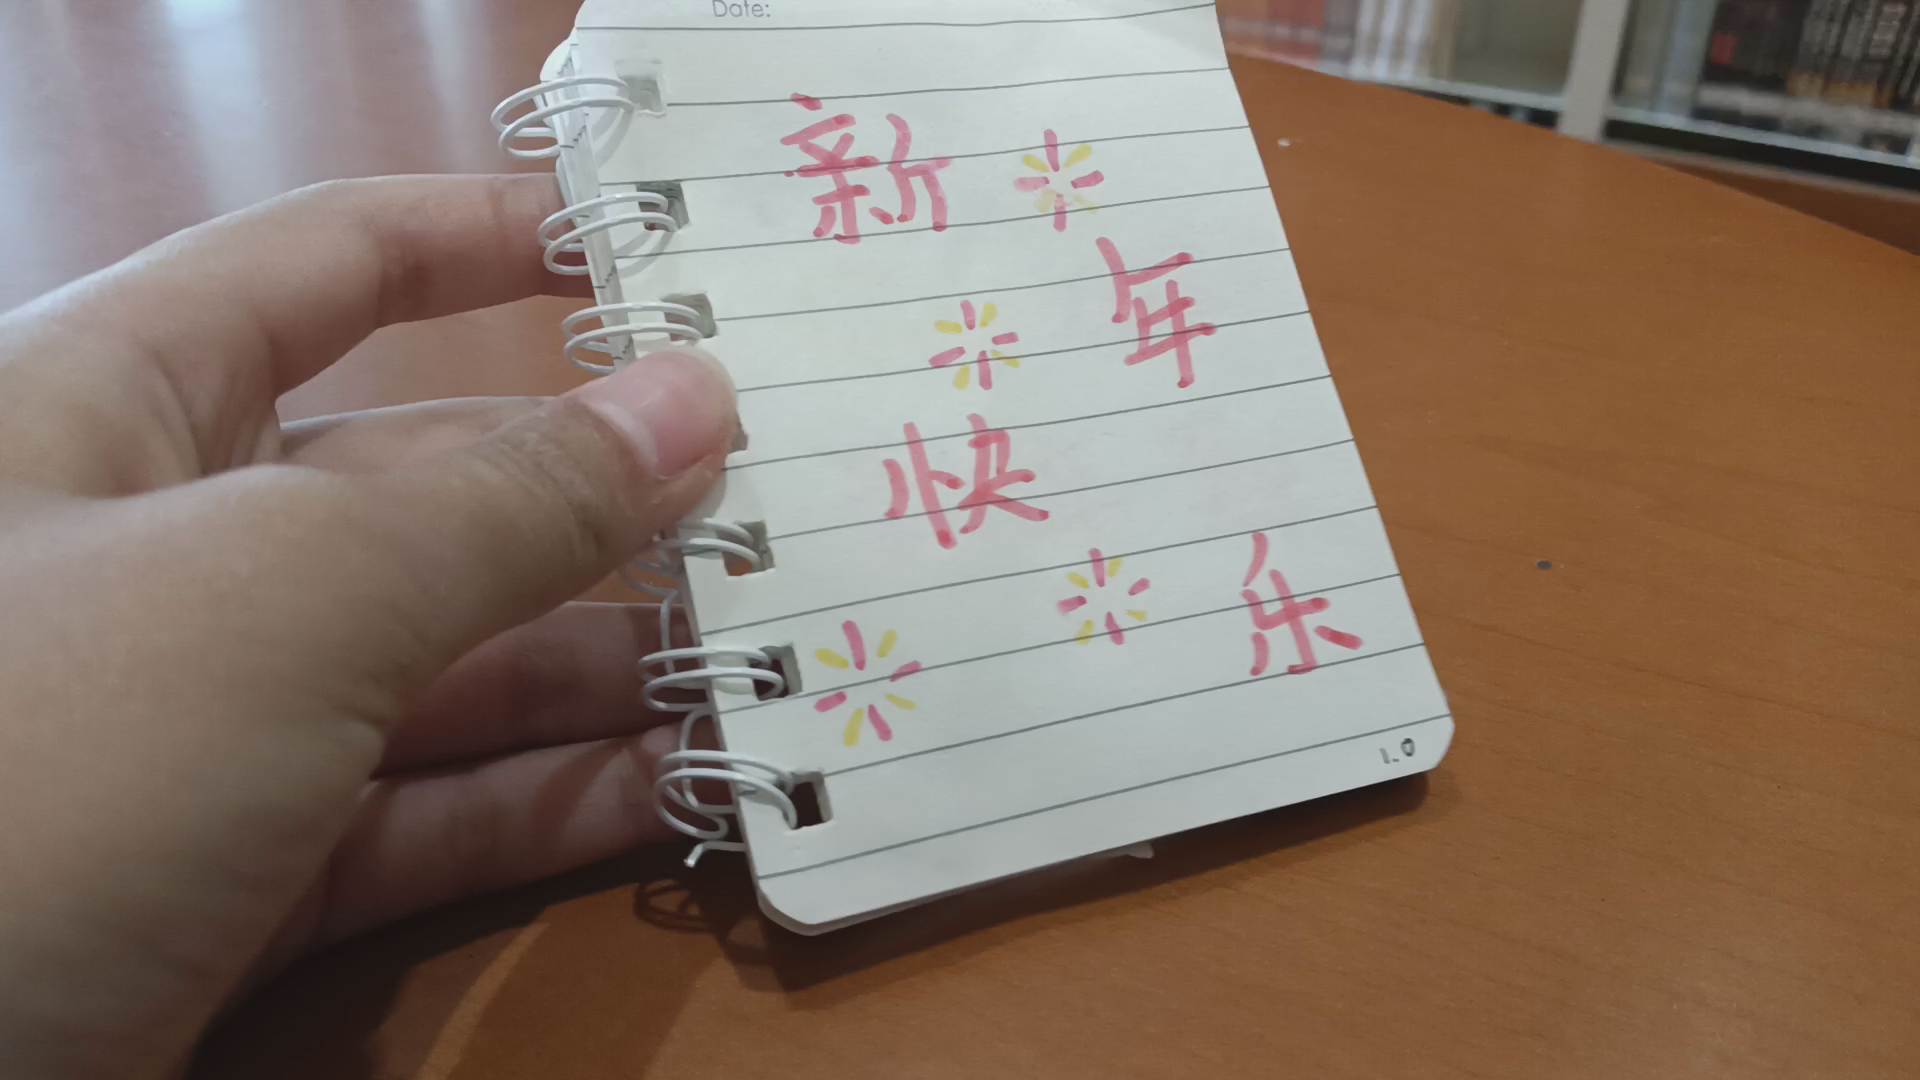 Date:
新
年
快
乐
1.0